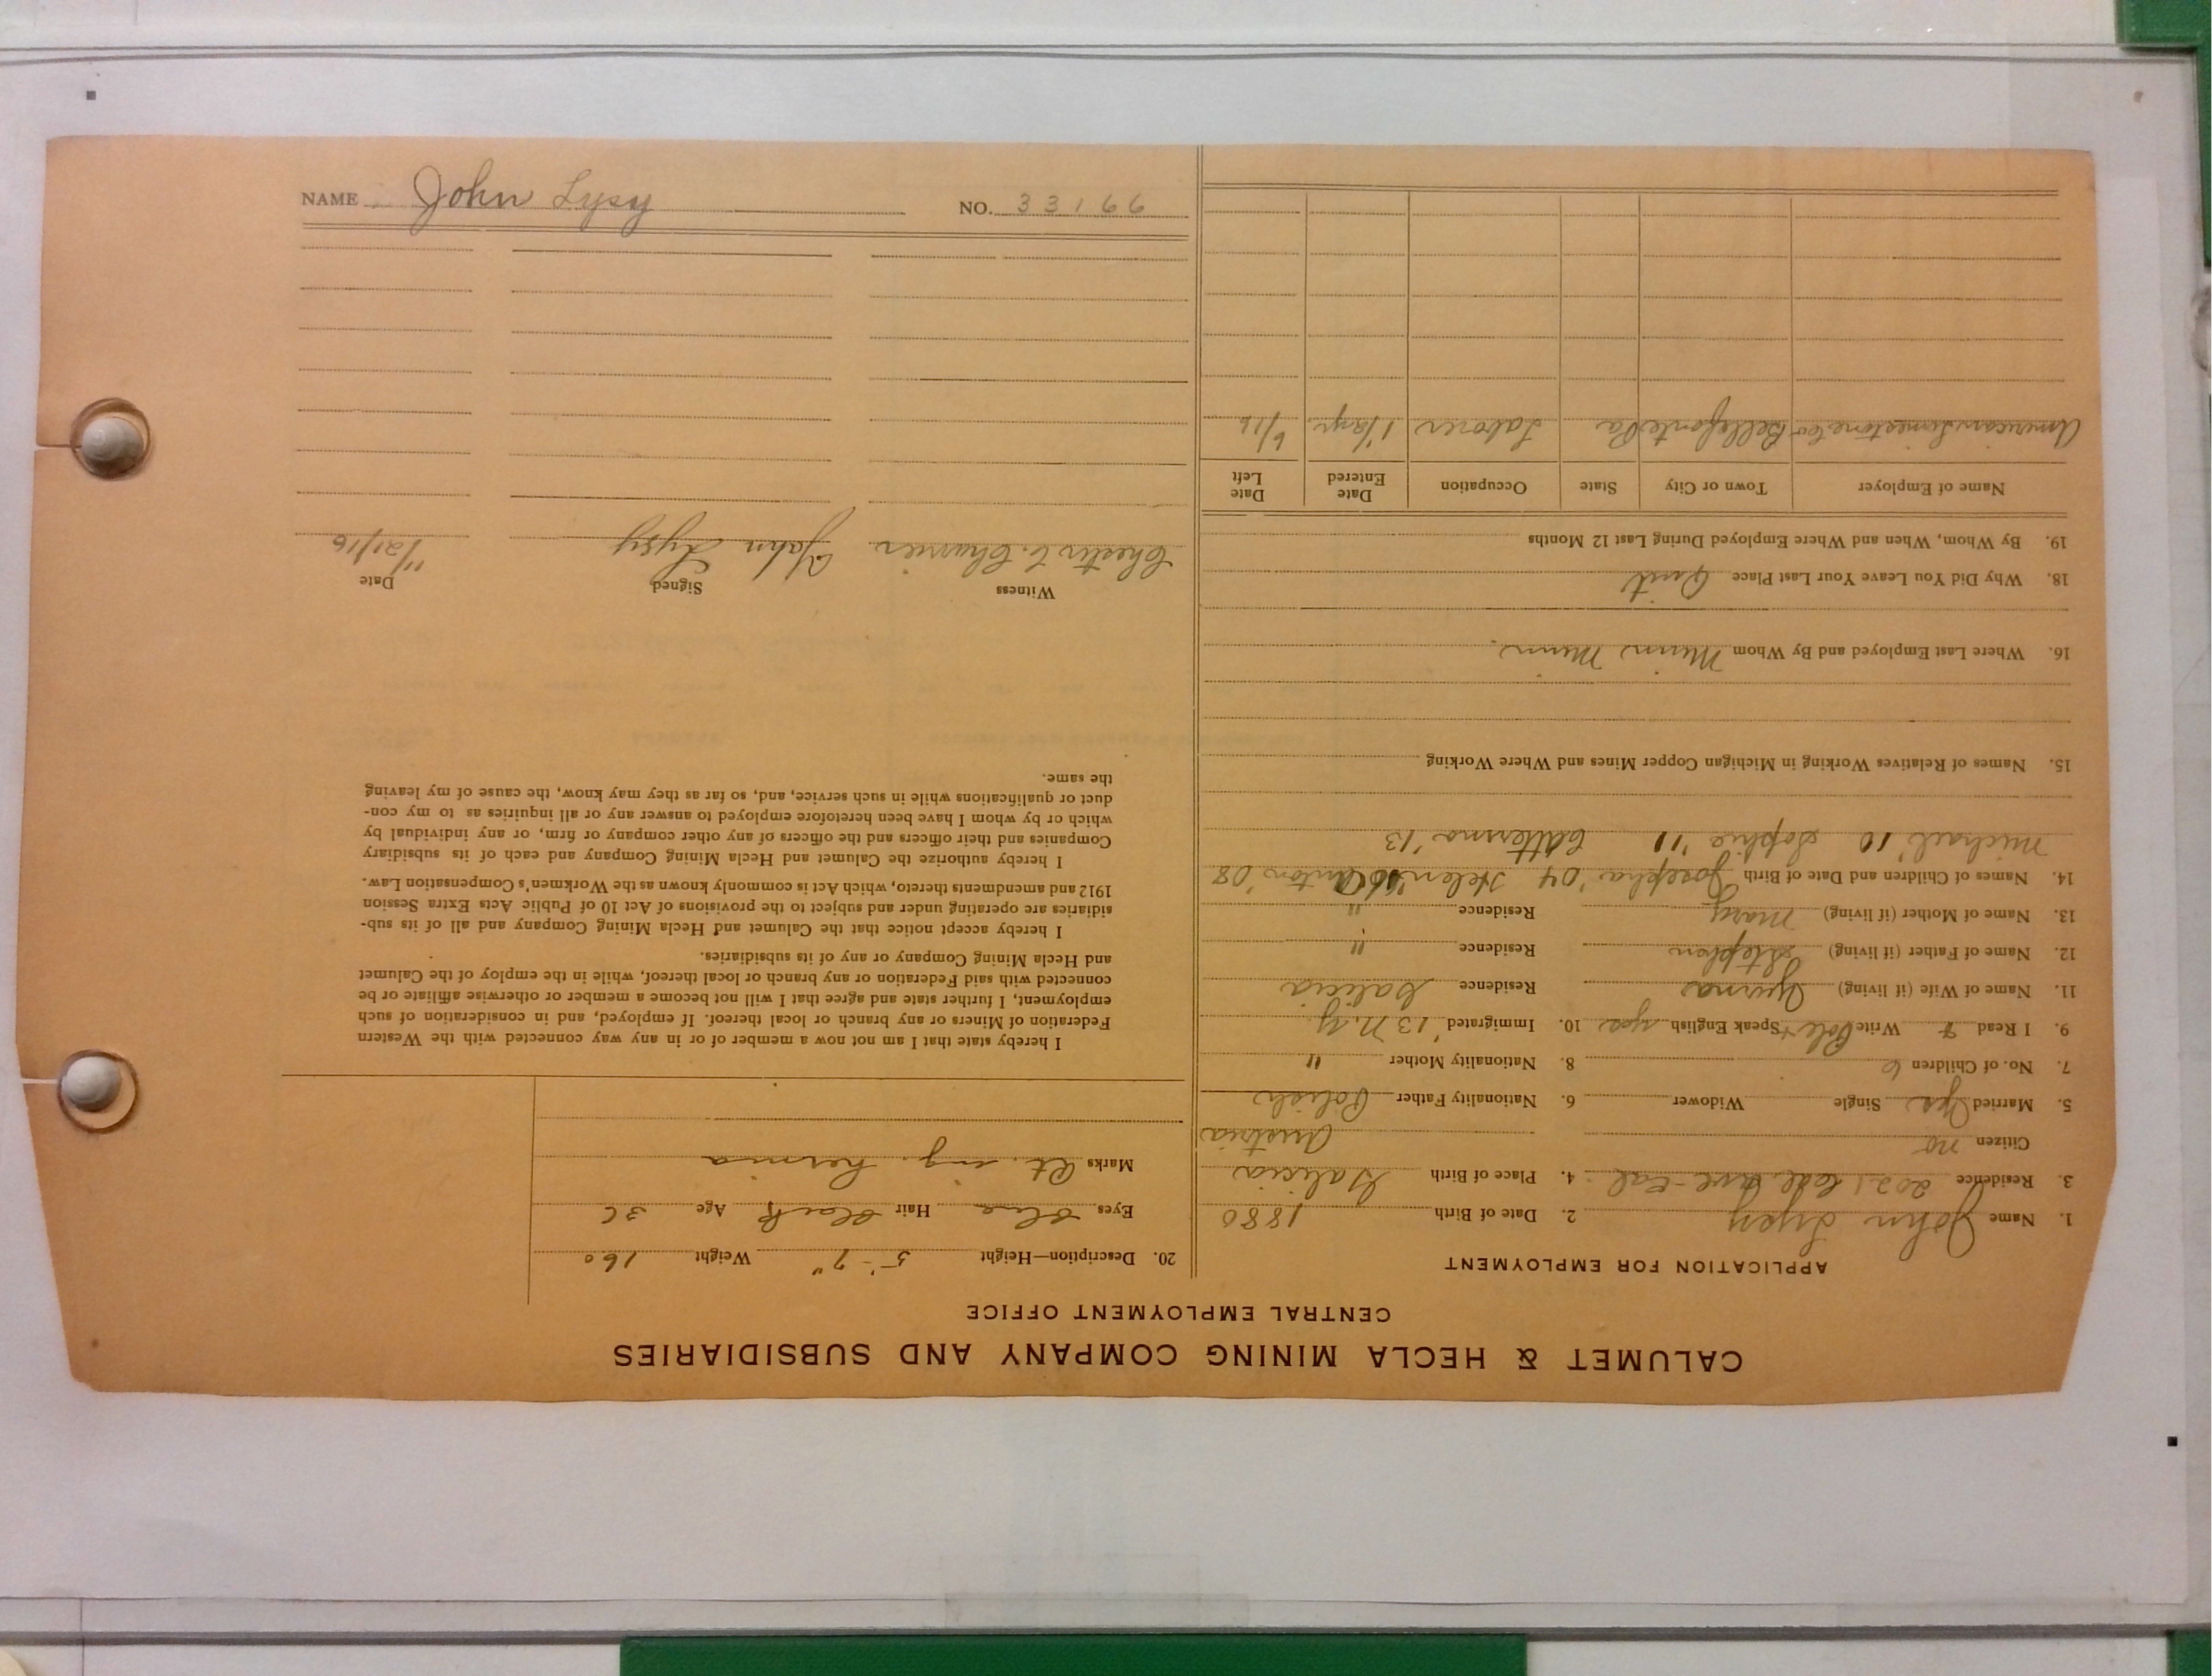 CALUMET & HECLA MINING COMPANY AND SUBSIDIARIES
CENTRAL EMPLOYMENT OFFICE
APPLICATION FOR EMPLOYMENT
1. Name John Lysy 2. Date of Birth 1880
3. Residence 2021 Cal. Ave - Cal 4. Place of Birth Galicia
Citizen no Austria
5. Married Yes Single Widower 6. Nationality Father Polish
7. No. of Children 6 8. Nationality Mother "
9. I Read & Write Pole + Speak English yes 10. Immigrated '13 N.Y.
11. Name of Wife (if living) Residence Galicia
12. Name of Father (if living) Stephen Residence "
13. Name of Mother (if living) Mary Residence "
14. Names of Children and Date of Birth Josepha '04 Helen '06 Anton '08
Michael '10 Sophie '11 '13
15. Names of Relatives Working in Michigan Copper Mines and Where Working
16. Where Last Employed and By Whom Minn
18. Why Did You Leave Your Last Place Quit
19. By Whom, When and Where Employed During Last 12 Months
Name of Employer Town or City State Occupation Date Entered Date Left
American Limestone Co Bellefonte Pa Laborer 1½ yr. 6/16
20. Description—Height 5'-7" Weight 160
Eyes blue Hair black Age 36
Marks Rt. ing. hernia
I hereby state that I am not now a member of or in any way connected with the Western
Federation of Miners or any branch or local thereof. If employed, and in consideration of such
employment, I further state and agree that I will not become a member or otherwise affiliate or be
connected with said Federation or any branch or local thereof, while in the employ of the Calumet
and Hecla Mining Company or any of its subsidiaries.
I hereby accept notice that the Calumet and Hecla Mining Company and all of its sub-
sidiaries are operating under and subject to the provisions of Act 10 of Public Acts Extra Session
1912 and amendments thereto, which Act is commonly known as the Workmen's Compensation Law.
I hereby authorize the Calumet and Hecla Mining Company and each of its subsidiary
Companies and their officers and the officers of any other company or firm, or any individual by
which or by whom I have been heretofore employed to answer any or all inquiries as to my con-
duct or qualifications while in such service, and, so far as they may know, the cause of my leaving
the same.
Witness Signed Date
Chester C. John Lysy 11/21/16
NAME John Lysy NO. 33166